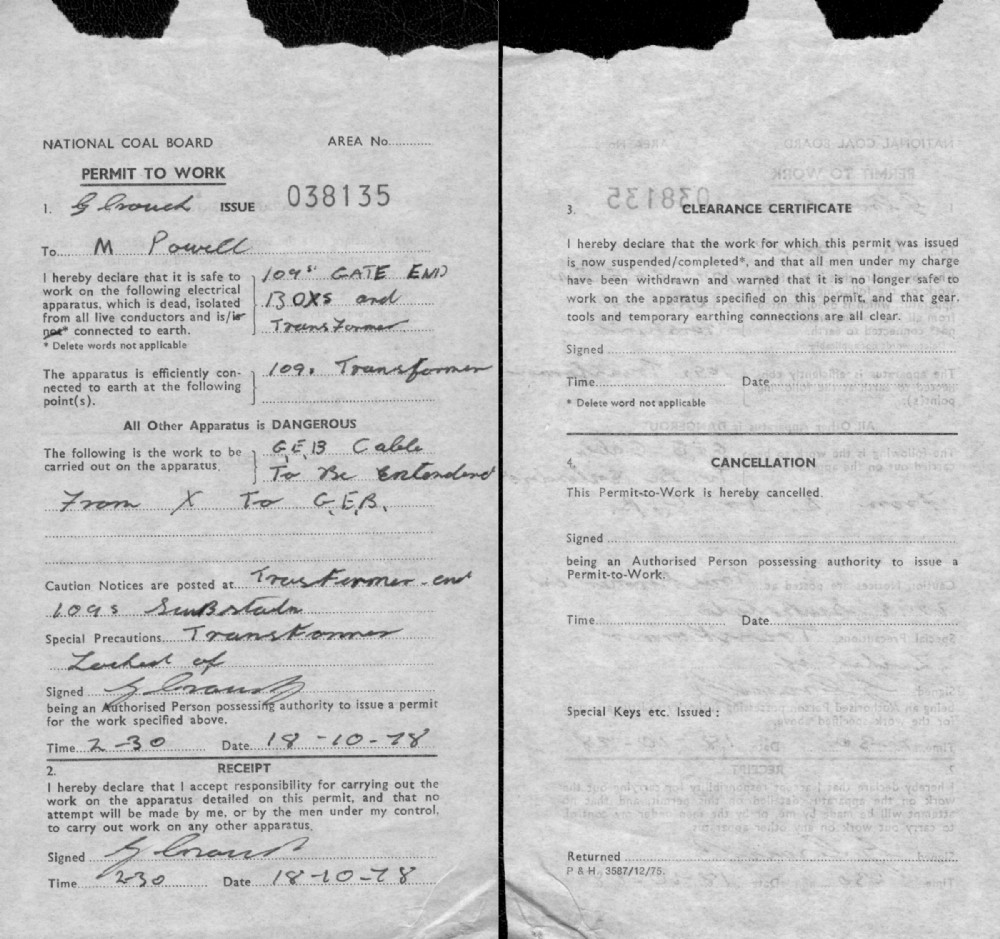 NATIONAL COAL BOARD AREA No............
PERMIT TO WORK
1. G Crouch ISSUE 038135
To M Powell
I hereby declare that it is safe to work on the following electrical apparatus, which is dead, isolated from all live conductors and is/is not* connected to earth.
109s GATE END
BOXS and
Transformer
* Delete words not applicable
The apparatus is efficiently connected to earth at the following point(s).
109s Transformer
All Other Apparatus is DANGEROUS
The following is the work to be carried out on the apparatus.
G.E.B Cable
To Be Entendend
From X To G.E.B.
Caution Notices are posted at Transformer and
109s SuBstatn
Special Precautions Transformer
Locked of
Signed G Crouch
being an Authorised Person possessing authority to issue a permit
for the work specified above.
Time 2-30 Date 18-10-78
2. RECEIPT
I hereby declare that I accept responsibility for carrying out the
work on the apparatus detailed on this permit, and that no
attempt will be made by me, or by the men under my control,
to carry out work on any other apparatus.
Signed G Crouch
Time 230 Date 18-10-78
3. CLEARANCE CERTIFICATE
I hereby declare that the work for which this permit was issued
is now suspended/completed*, and that all men under my charge
have been withdrawn and warned that it is no longer safe to
work on the apparatus specified on this permit, and that gear,
tools and temporary earthing connections are all clear.
Signed
Time Date
* Delete word not applicable
4. CANCELLATION
This Permit-to-Work is hereby cancelled.
Signed
being an Authorised Person possessing authority to issue a
Permit-to-Work.
Time Date
Special Keys etc. Issued :
Returned
P & H. 3587/12/75.